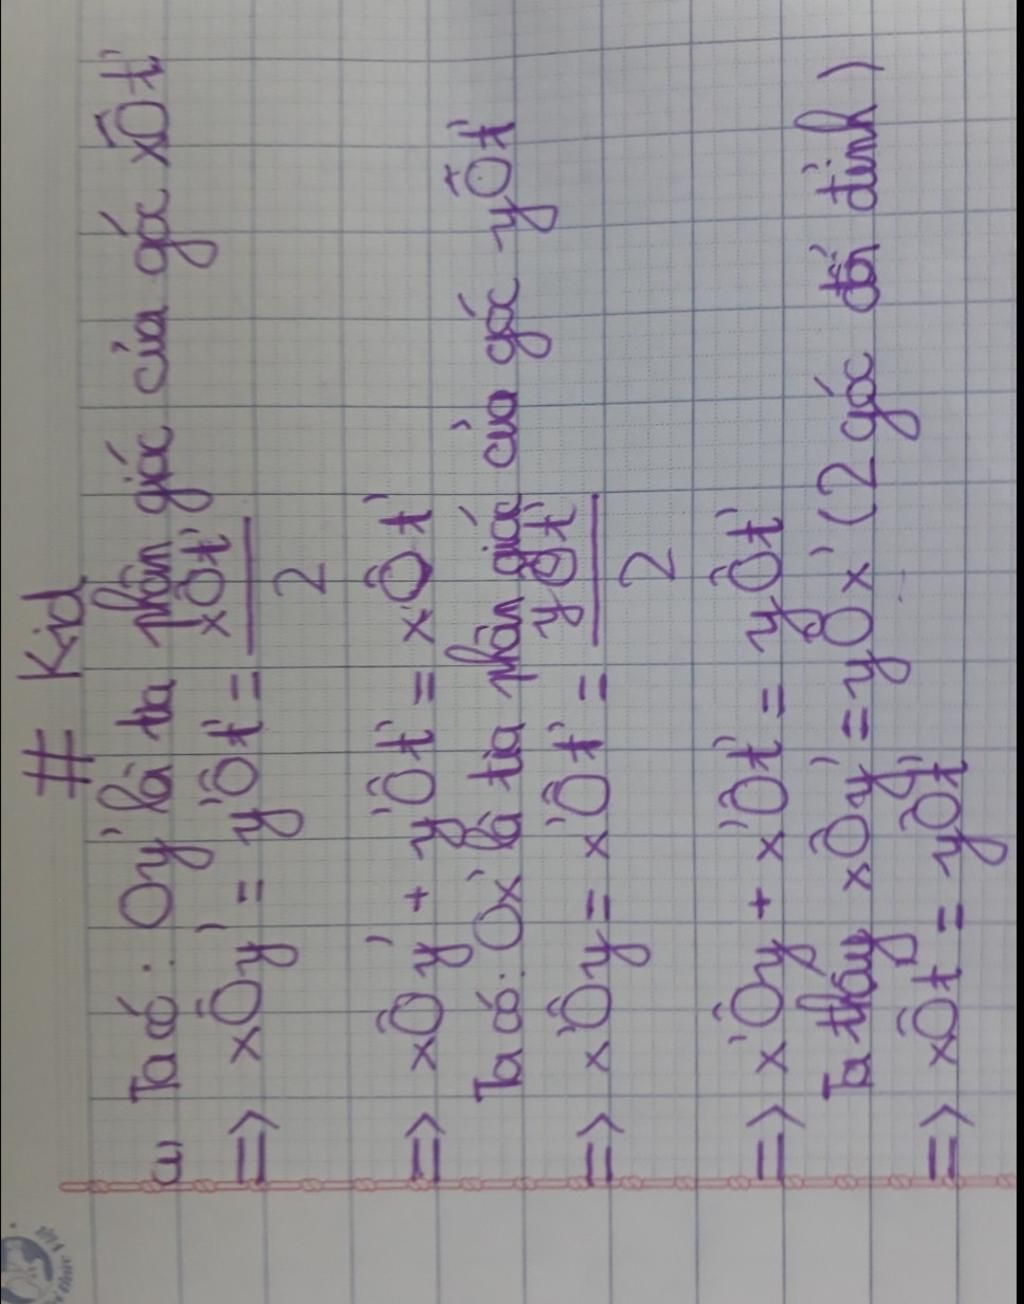 # Kid
a) Ta có: Oy' là tia phân giác của góc xÔt'
=> xÔy' = y'Ôt' = xÔt' / 2
=> xÔy' + y'Ôt' = xÔt'
Ta có: Ox' là tia phân giác của góc yÔt'
=> x'Ôy = x'Ôt' = yÔt' / 2
=> x'Ôy + x'Ôt' = yÔt'
Ta thấy xÔy' = yÔx' (2 góc đối đỉnh)
=> xÔt' = yÔt'